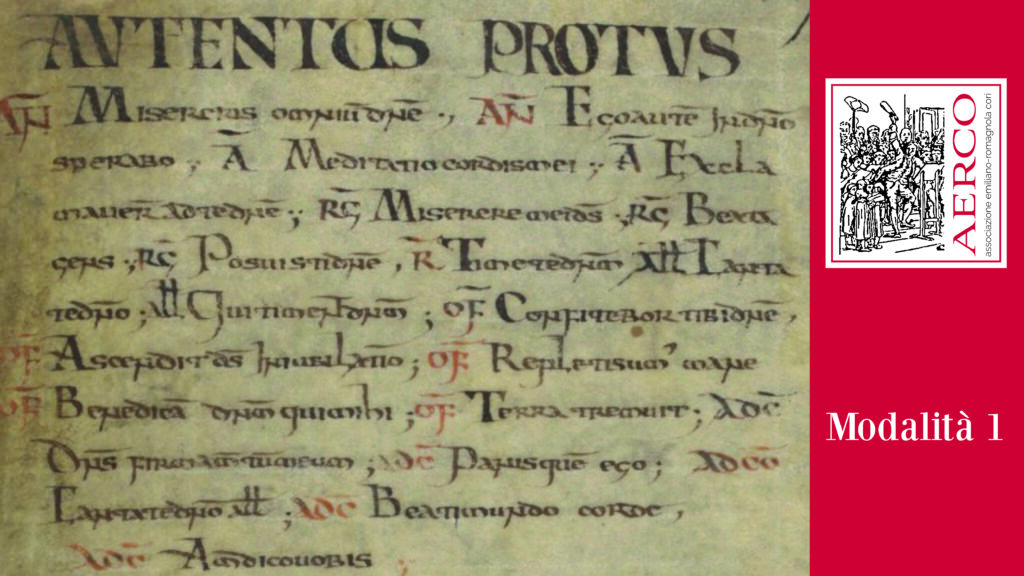 AVTENTUS PROTVS
AÑ Misereris omniū dñe ., AÑ Ego autē in dño
sperabo ., A Meditatio cordis mei ., A Excla
ꞃc Miserere mei ds ., ꞃc
; R Posuisti dñe , R Timete dñm All
; All Qui timent dñm ; OF Confitebor tibi dñe ,
OF Ascendit ds in iubilatio ; OF Repleti sum' mane
OF Benedicā dñm qui mihi ; OF Terra tremuit ; ADC
Dñs firmam tum meum ; ADC Panis quē ego ; ADCO
Cantate dño all ; ADC Beati mundo corde ,
ADC Amdico vobis ;
AERCO
associazione emiliano-romagnola cori
Modalità 1